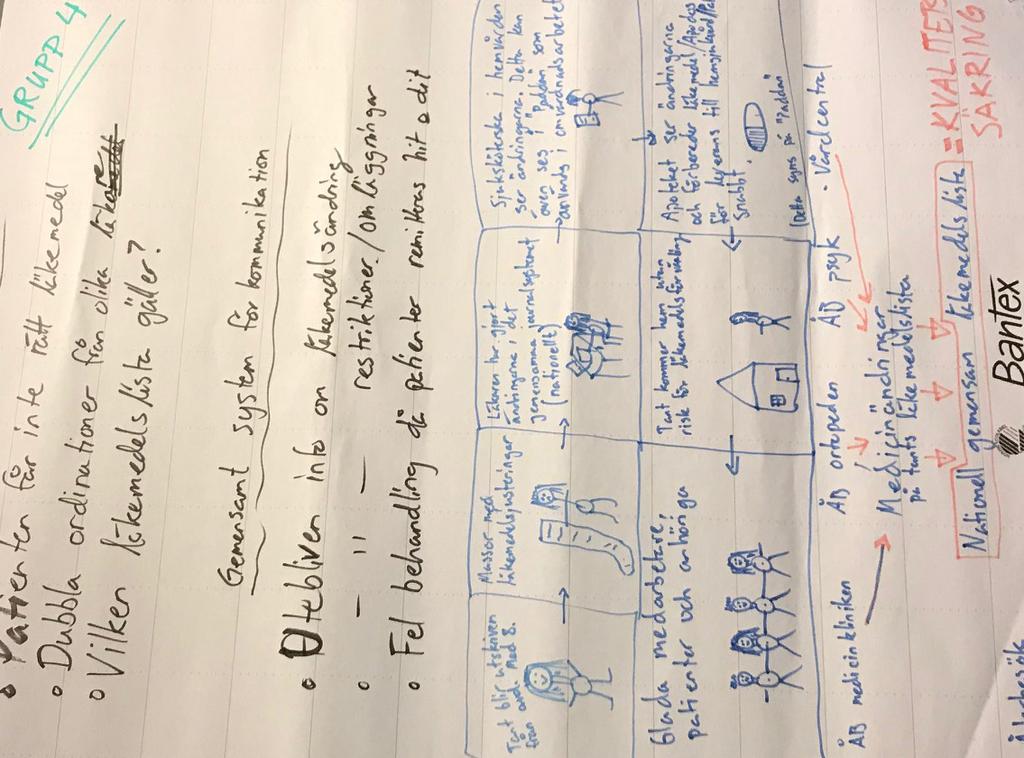 GRUPP 4
• Patienten får inte rätt läkemedel
• Dubbla ordinationer från olika läkare
• Vilken läkemedelslista gäller?
Gemensamt system för kommunikation
• Utebliven info om läkemedelsändring
• — " — restriktioner/omläggningar
• Fel behandling då patienter remitteras hit o dit
Tant blir utskriven
från avd med 8.
Massor med
läkemedelsjusteringar
Läkaren har gjort
ändringarna i det
gemensamma journalsystemet
(nationellt)
Sjuksköterska i hemvården
ser ändringarna. Detta kan
även ses i "paddan" som
används i omvårdnadsarbetet
Glada medarbetare,
patienter och anhöriga!
Tant kommer hem utan
risk för läkemedelsförväxling
Apoteket ser ändringarna
och förbereder läkemedel/Apodos
för leverans till
Snabbt!
(Detta syns på "Paddan"
ÅB medicinkliniken ÅB ortopeden ÅB psyk - Vårdcentral
Medicinändringar
på tants läkemedelslista
Nationell gemensam läkemedelslista = KVALITETS
SÄKRING
Bantex
Återbesök